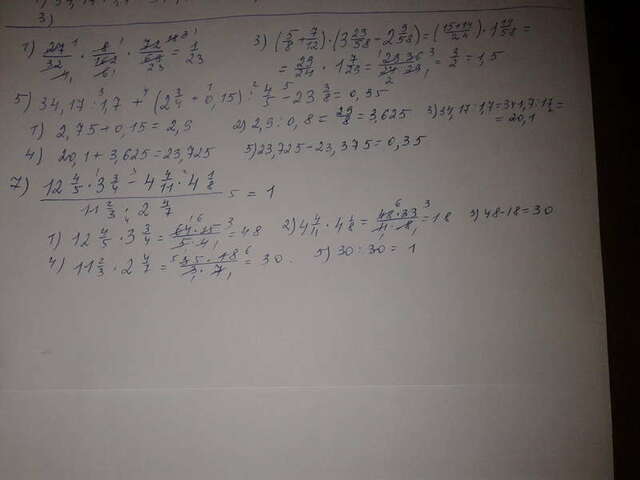 3)
1) 27/32 · 8/162 · 72/69 = 1/23
3) (5/8 + 7/12) · (3 23/58 - 2 9/58) = ((15+14)/24) · 1 =
= 29/24 · 1 7/29 = 29·36/24·29 = 3/2 = 1,5
5) 34,17 : 1,7 + (2 3/4 + 0,15) : 4/5 - 23 3/8 = 0,35
1) 2,75 + 0,15 = 2,9 2) 2,9 : 0,8 = 29/8 = 3,625 3) 34,17 : 1,7 = 341,7 : 17 =
= 20,1
4) 20,1 + 3,625 = 23,725 5) 23,725 - 23,375 = 0,35
7) (12 4/5 · 3 3/4 - 4 4/11 · 4 1/8) / (11 2/3 · 2 4/7) = 1
1) 12 4/5 · 3 3/4 = 64·15/5·4 = 48 2) 4 4/11 · 4 1/8 = 48·33/11·8 = 18 3) 48-18=30
4) 11 2/3 · 2 4/7 = 35·18/3·7 = 30. 5) 30 : 30 = 1